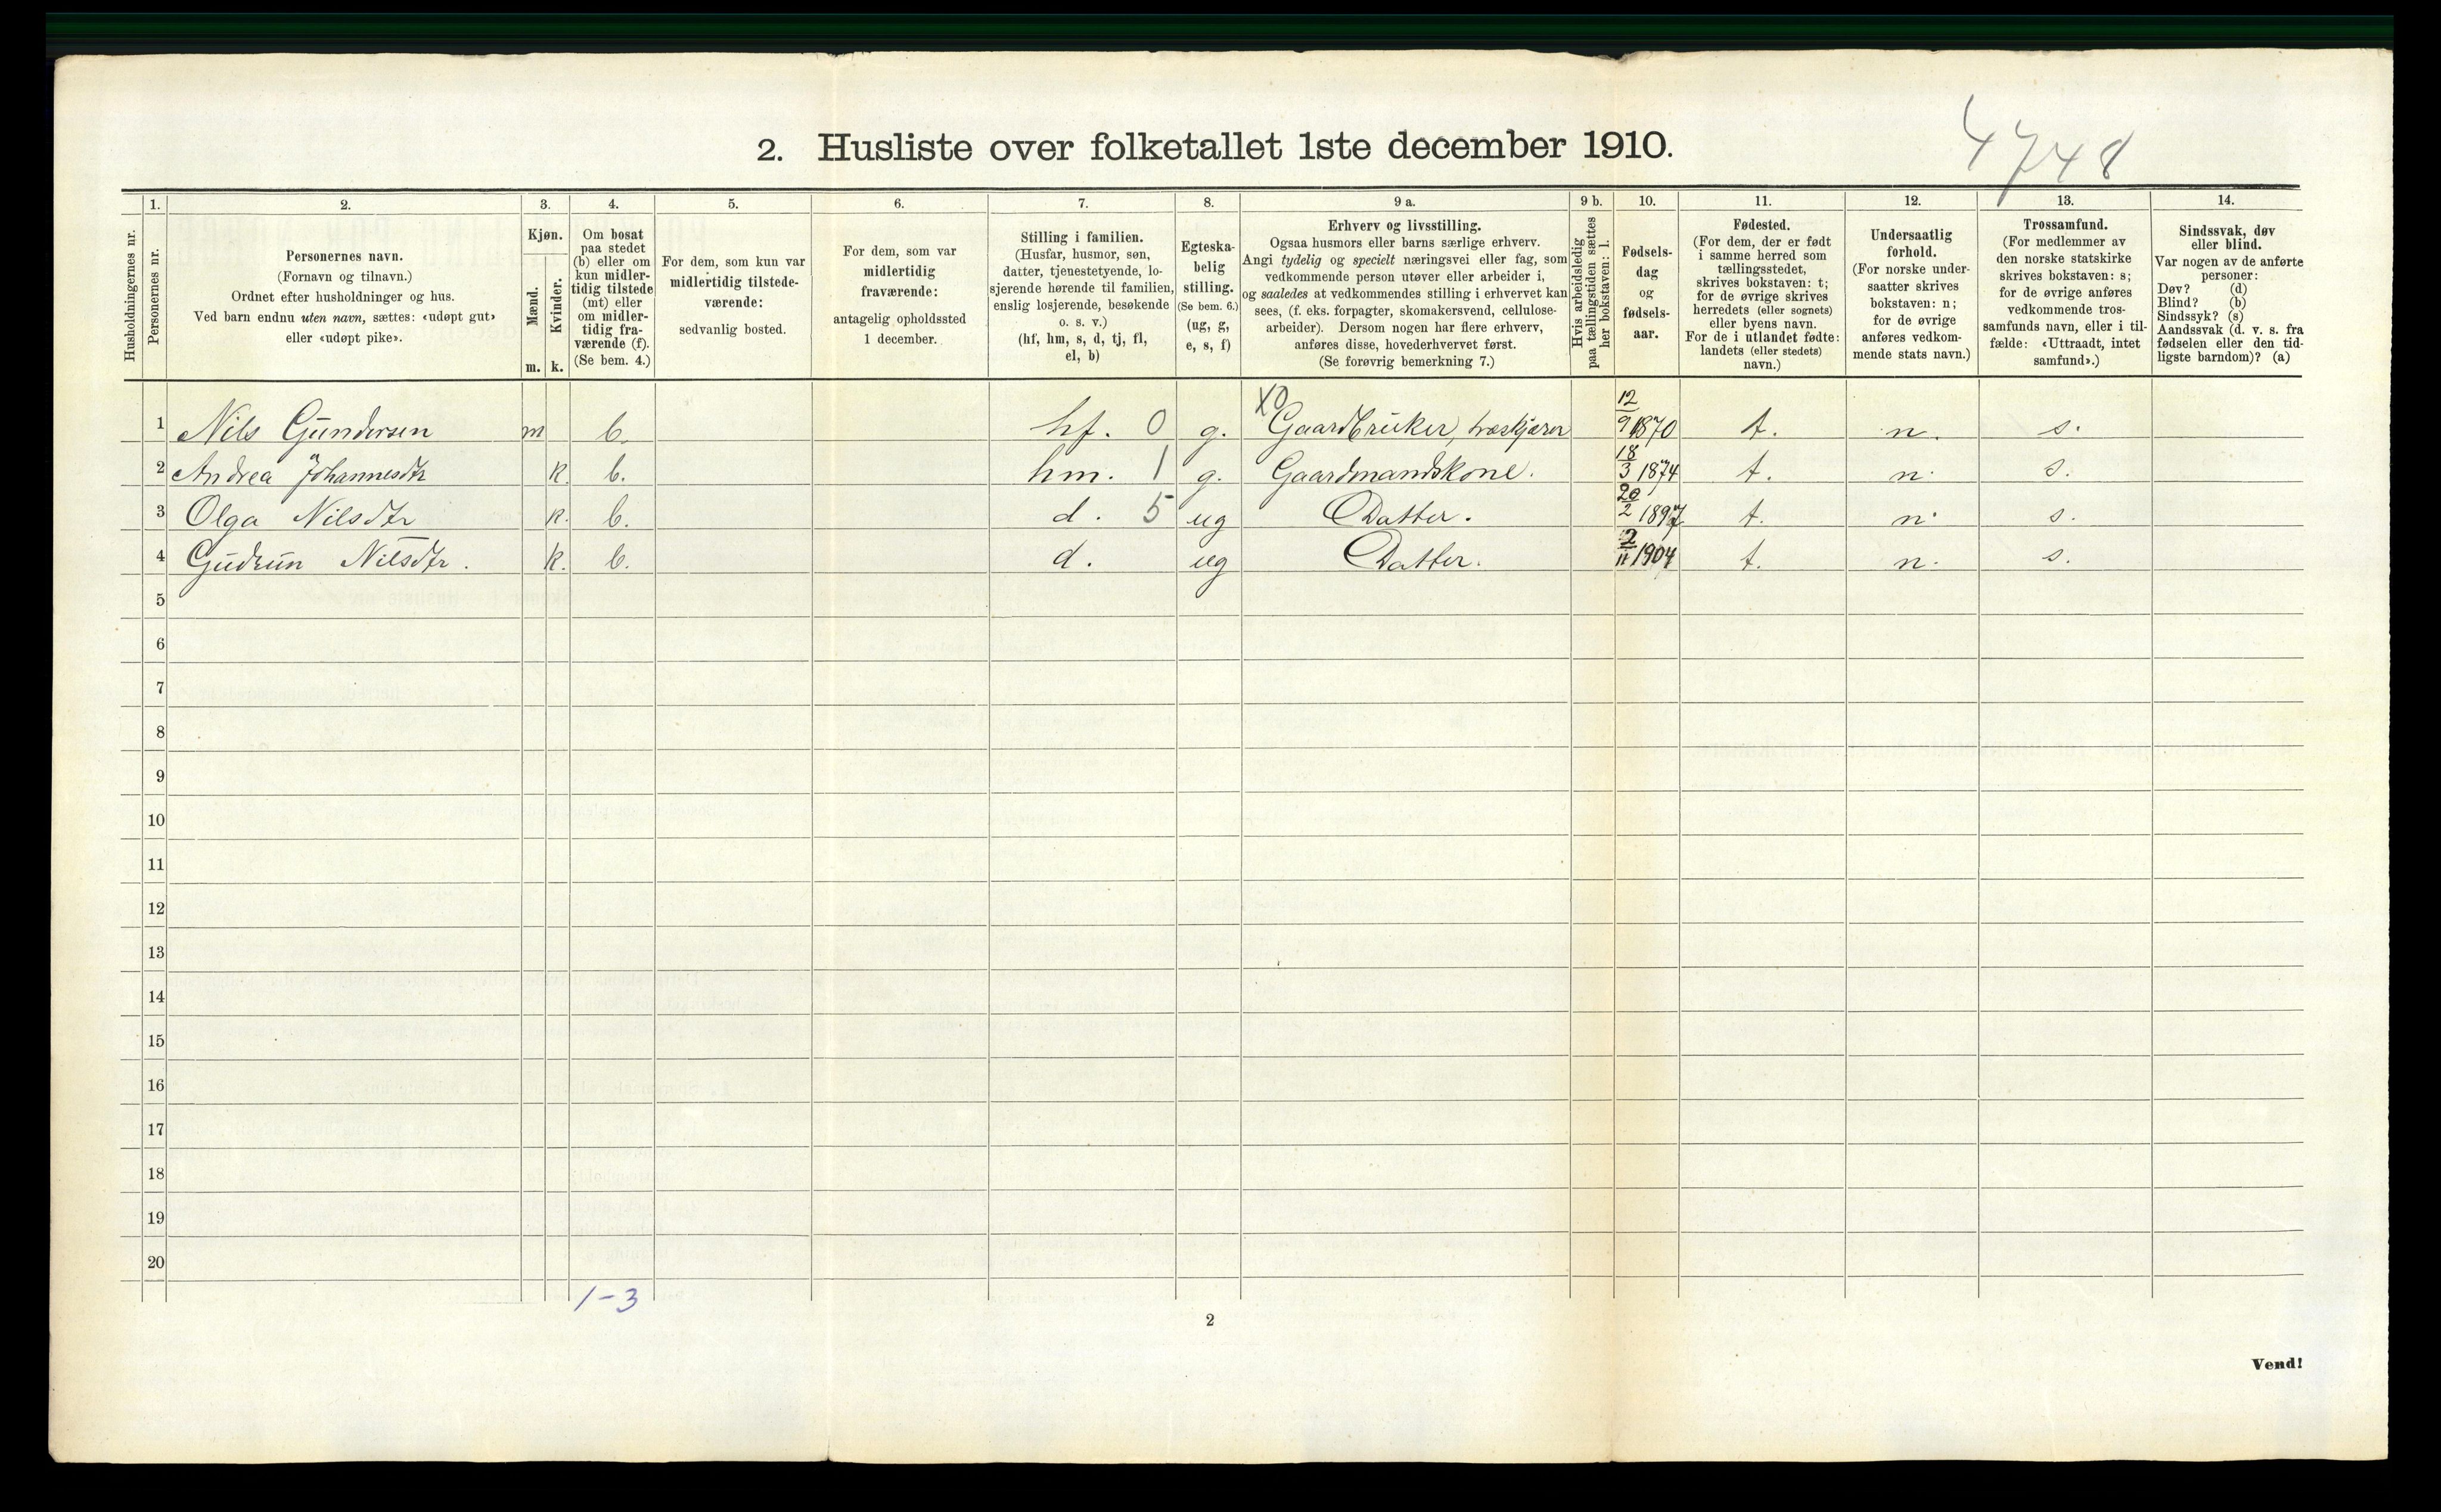 4748
2. Husliste over folketallet 1ste december 1910.
Husholdningernes nr.
1.
Personernes nr.
2.
Personernes navn.
(Fornavn og tilnavn.)
Ordnet efter husholdninger og hus.
Ved barn endnu uten navn, sættes: «udøpt gut»
eller «udøpt pike».
3.
Kjøn.
Mænd.
Kvinder.
m. k.
4.
Om bosat
paa stedet
(b) eller om
kun midler-
tidig tilstede
(mt) eller
om midler-
tidig fra-
værende (f).
(Se bem. 4.)
5.
For dem, som kun var
midlertidig tilstede-
værende:
sedvanlig bosted.
6.
For dem, som var
midlertidig
fraværende:
antagelig opholdssted
1 december.
7.
Stilling i familien.
(Husfar, husmor, søn,
datter, tjenestetyende, lo-
sjerende hørende til familien,
enslig losjerende, besøkende
o. s. v.)
(hf, hm, s, d, tj, fl,
el, b)
8.
Egteska-
belig
stilling.
(Se bem. 6.)
(ug, g,
e, s, f)
9 a.
Erhverv og livsstilling.
Ogsaa husmors eller barns særlige erhverv.
Angi tydelig og specielt næringsvei eller fag, som
vedkommende person utøver eller arbeider i,
og saaledes at vedkommendes stilling i erhvervet kan
sees, (f. eks. forpagter, skomakersvend, cellulose-
arbeider). Dersom nogen har flere erhverv,
anføres disse, hovederhvervet først.
(Se forøvrig bemerkning 7.)
9 b.
Hvis arbeidsledig
paa tællingstiden sættes
her bokstaven: l.
10.
Fødsels-
dag
og
fødsels-
aar.
11.
Fødested.
(For dem, der er født
i samme herred som
tællingsstedet,
skrives bokstaven: t;
for de øvrige skrives
herredets (eller sognets)
eller byens navn.
For de i utlandet fødte:
landets (eller stedets)
navn.)
12.
Undersaatlig
forhold.
(For norske under-
saatter skrives
bokstaven: n;
for de øvrige
anføres vedkom-
mende stats navn.)
13.
Trossamfund.
(For medlemmer av
den norske statskirke
skrives bokstaven: s;
for de øvrige anføres
vedkommende tros-
samfunds navn, eller i til-
fælde: «Uttraadt, intet
samfund».)
14.
Sindssvak, døv
eller blind.
Var nogen av de anførte
personer:
Døv? (d)
Blind? (b)
Sindssyk? (s)
Aandssvak (d. v. s. fra
fødselen eller den tid-
ligste barndom)? (a)
1 Nils Gundersen m b. hf. 0 g. X0 Gaardbruker, træskjærer 12/9 1870 t. n. s.
2 Andrea Johannesdtr k. b. hm. 1 g. Gaardmandskone. 18/3 1874 t. n. s.
3 Olga Nilsdtr k. b. d. 5 ug Datter. 20/2 1897 t. n. s.
4 Gudrun Nilsdtr. k. b. d. ug Datter. 2/11 1904 t. n. s.
5
6
7
8
9
10
11
12
13
14
15
16
17
18
19
20
1-3
2
Vend!